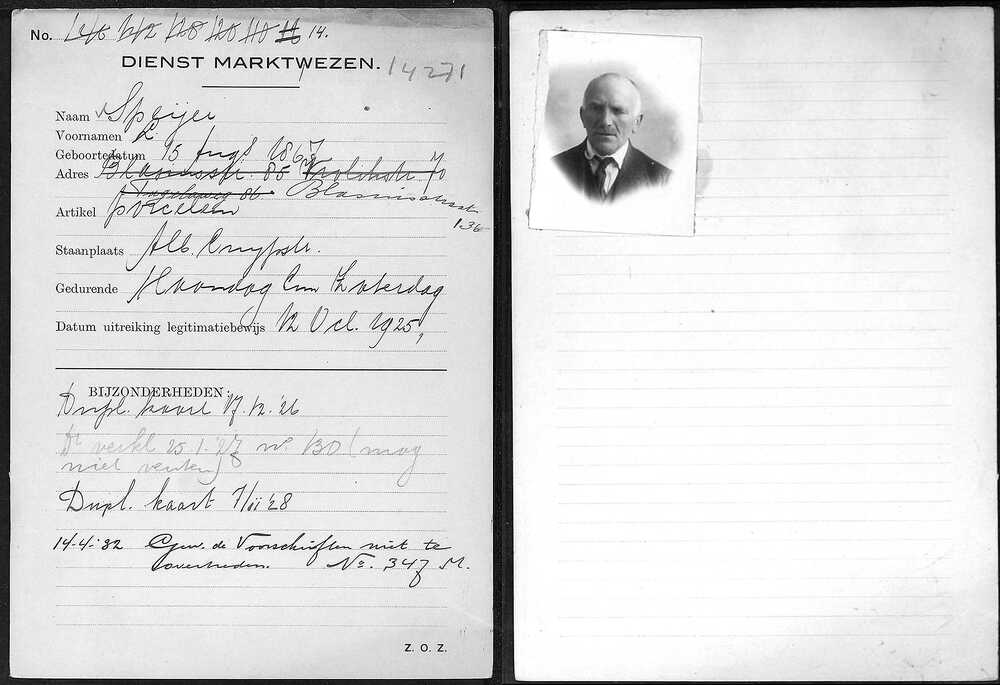 No. 146 142 128 120 110 16 14.
DIENST MARKTWEZEN. 14271
Naam Speijer
Voornamen L.
Geboortedatum 15 Aug 1867
Adres Blasiusstr. 85 Vrolikstr 70
86 Blasiusstraat
136
Artikel porcelein
Staanplaats Alb. Cuypstr.
Gedurende Maandag t/m Zaterdag
Datum uitreiking legitimatiebewijs 12 Oct. 1925,
BIJZONDERHEDEN:
Dupl. kaart 17.12.'26
Dr verkl 25.1.'27 no. 130 (mag
niet venten)
Dupl. kaart 7/11 '28
14-4-'32 Gew. de Voorschriften niet te
overtreden. No. 347 M.
Z. O. Z.